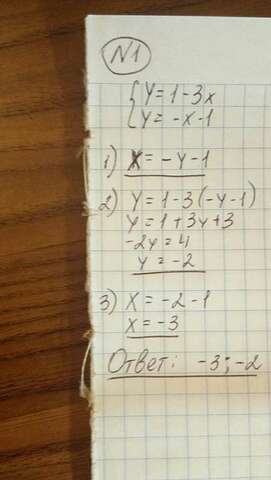 N1
{y = 1 - 3x
{y = -x - 1
1) x = -y - 1
2) y = 1 - 3(-y - 1)
y = 1 + 3y + 3
-2y = 4
y = -2
3) x = -2 - 1
x = -3
Ответ: -3; -2